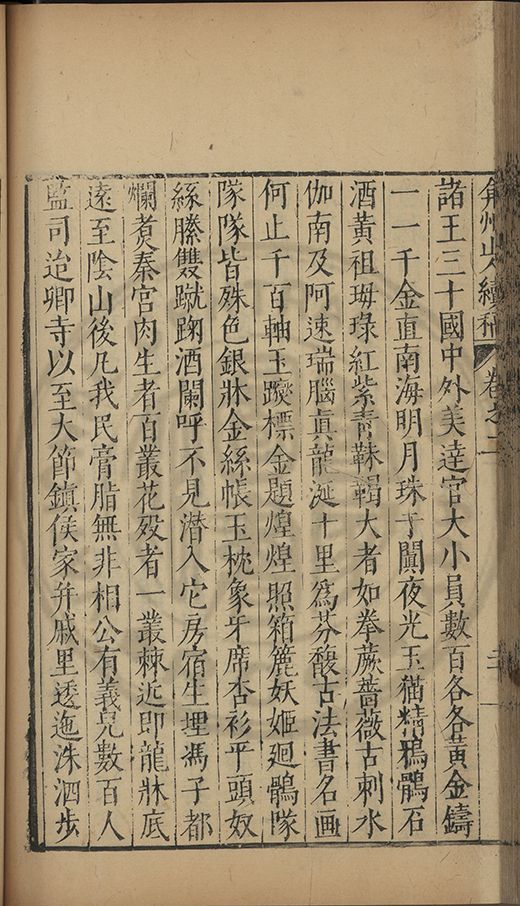 弇州山人續稿 卷之二 二
諸王三十國中外美達官大小員數百各各黃金鑄
一一千金直南海明月珠于闐夜光玉猫精鴉鶻石
酒黃祖母琭紅紫青靺鞨大者如拳蕨薔薇古刺水
伽南及阿速瑞腦眞龍涎十里爲芬馥古法書名画
何止千百軸玉躞標金題煌煌照箱簏妖姬廻鶻隊
隊隊皆殊色銀牀金絲帳玉枕象牙席杏衫平頭奴
絲縢雙蹴踘酒闌呼不見潜入它房宿生埋馮子都
爛煑秦宮肉生者百叢花殁者一叢棘近即龍牀底
遠至陰山後凡我民膏脂無非相公有義兒數百人
監司迨卿寺以至大節鎮侯家幷戚里逶迤洙泗步